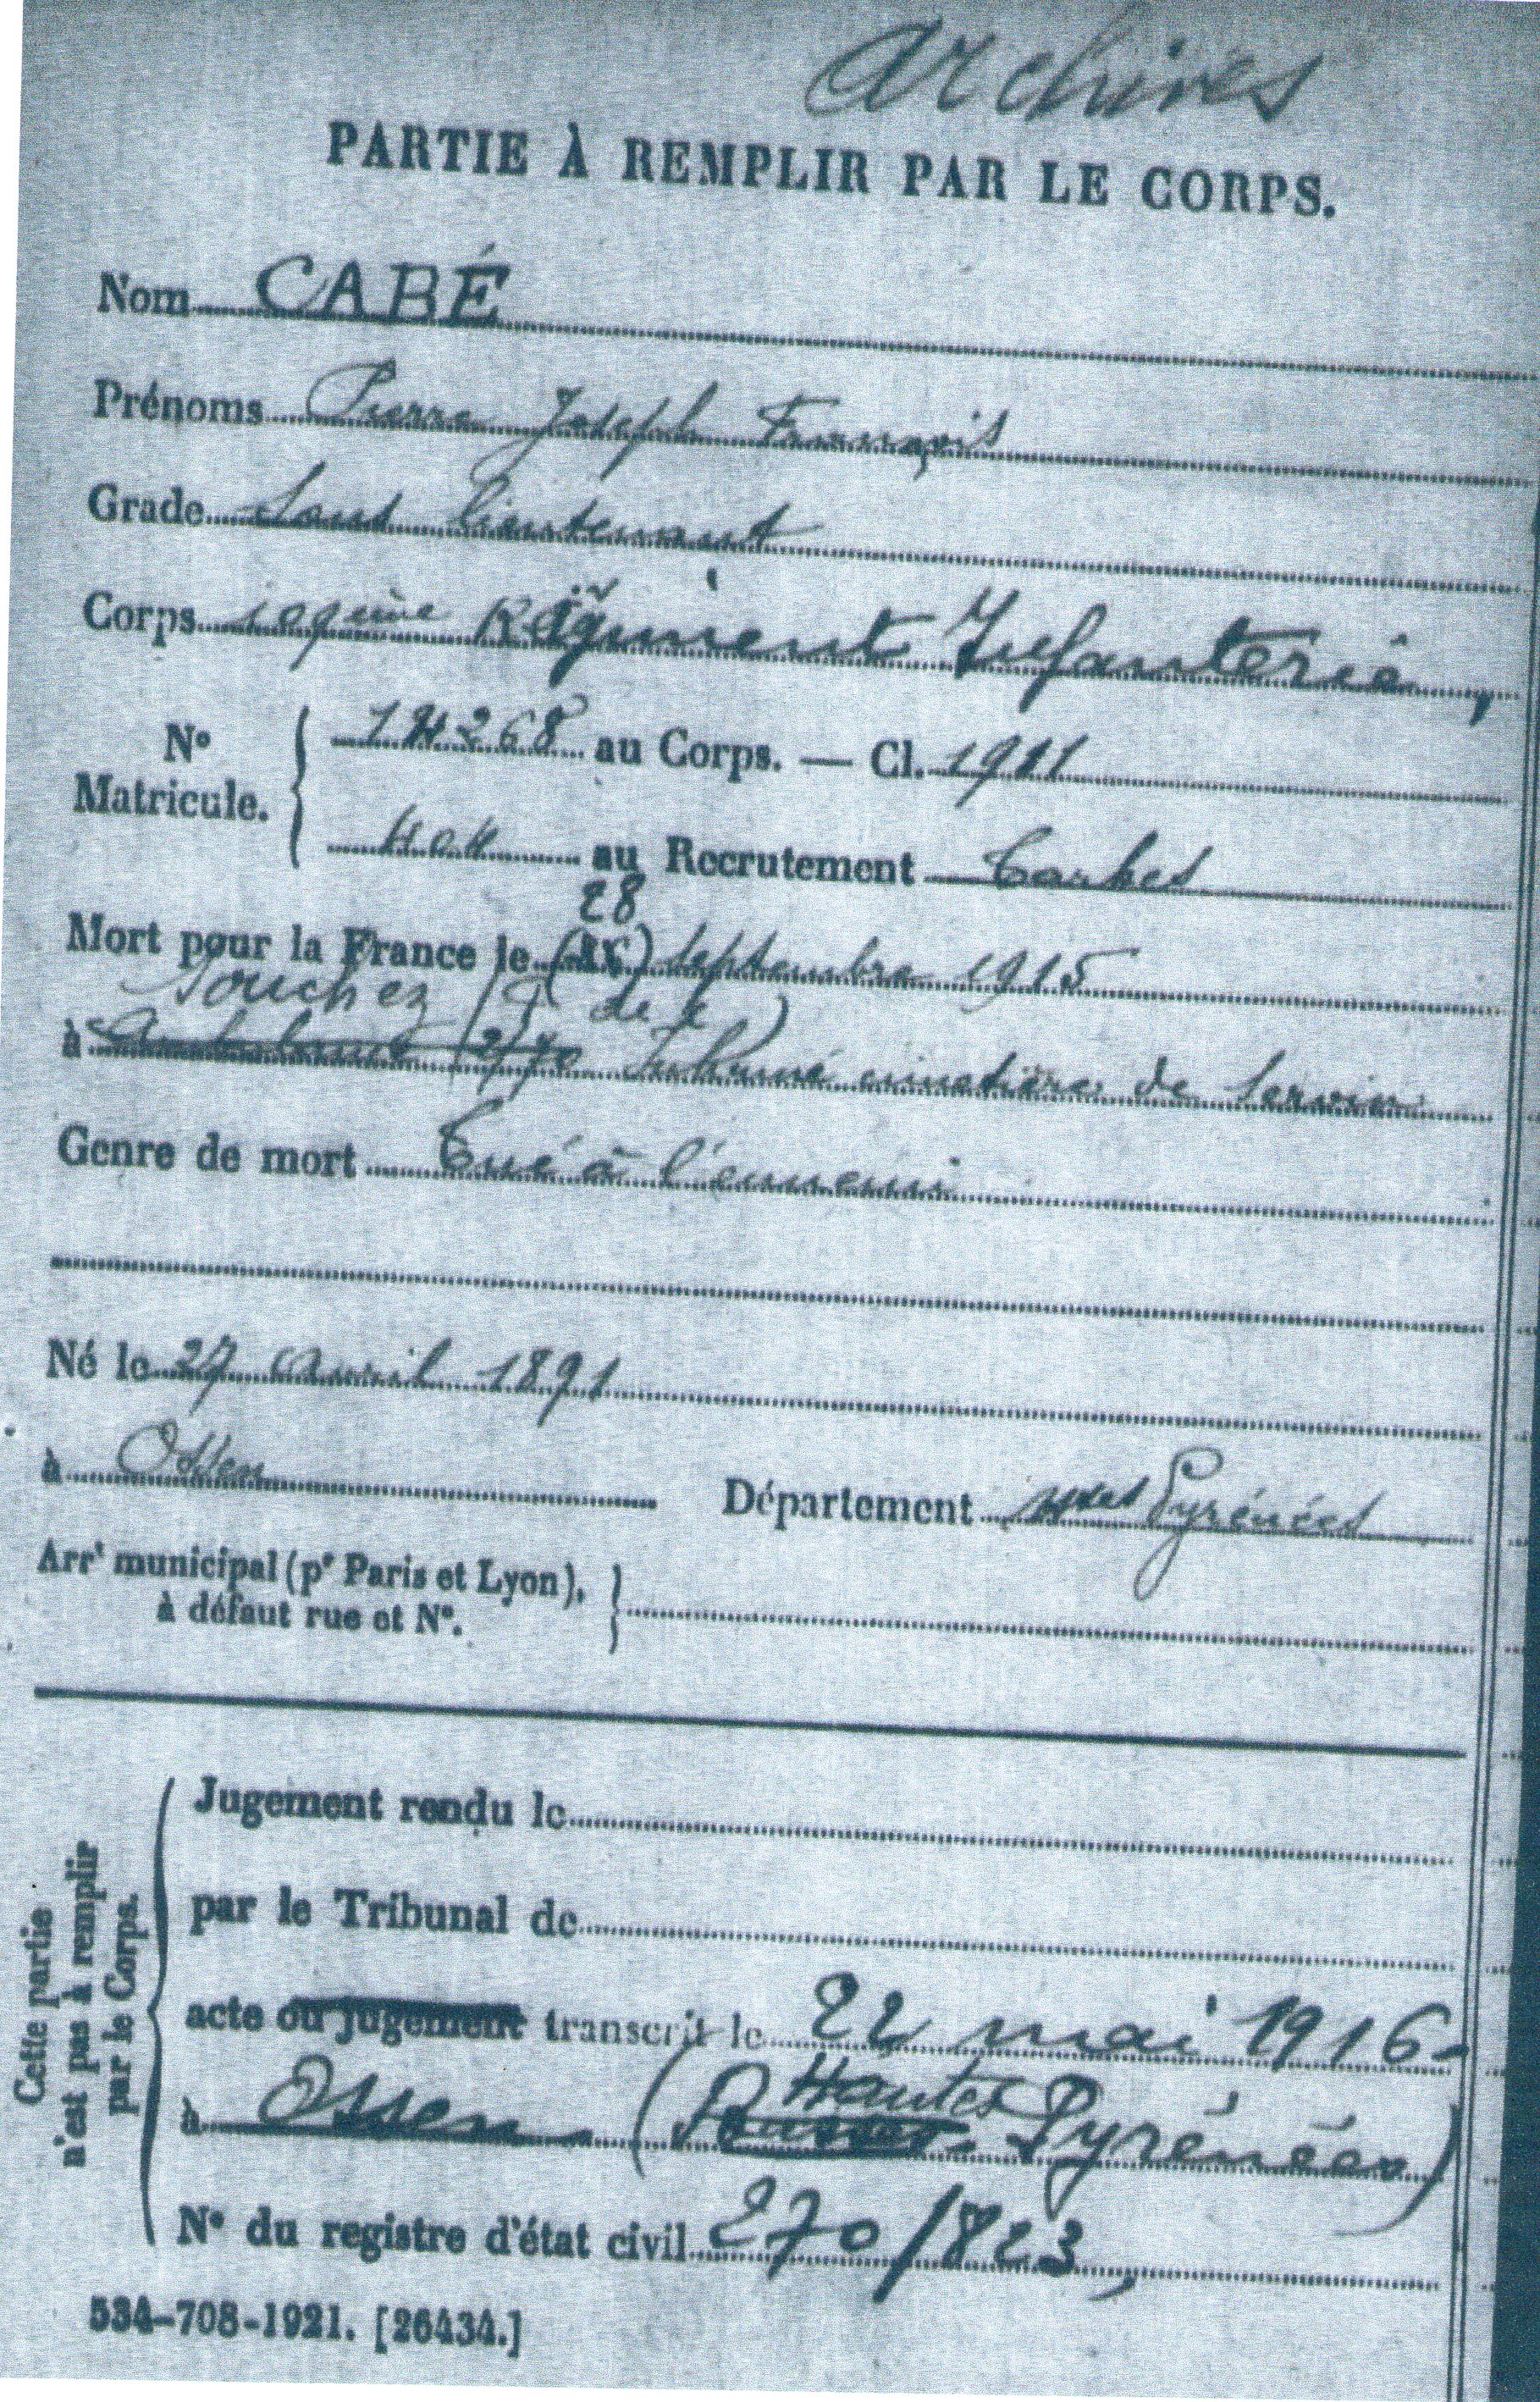 Archives
PARTIE À REMPLIR PAR LE CORPS.
Nom CABÉ
Prénoms Pierre Joseph François
Grade Sous lieutenant
Corps 109ème Régiment Infanterie,
N° Matricule. 14268 au Corps. — Cl. 1911
404 au Recrutement Tarbes
28
Mort pour la France le septembre 1915
Souchez (P de C)
à Ambulance 2/70 Inhumé cimetière de Servin
Genre de mort Tué à l'ennemi
Né le 27 avril 1891
à Ossen Département Htes Pyrénées
Arrt municipal (pr Paris et Lyon),
à défaut rue et N°.
Cette partie
n'est pas à remplir
par le Corps.
Jugement rendu le
par le Tribunal de
acte ou jugement transcrit le 22 mai 1916-
Hautes
à Ossen ( Pyrénées)
N° du registre d'état civil 270/823,
534-708-1921. [26434.]